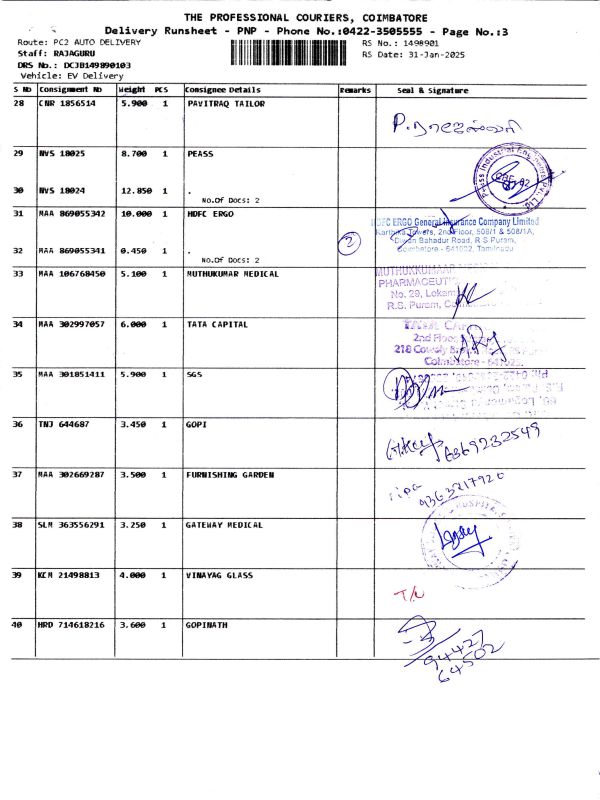 THE PROFESSIONAL COURIERS, COIMBATORE
Delivery Runsheet - PNP - Phone No.:0422-3505555 - Page No.:3
Route: PC2 AUTO DELIVERY RS No.: 1498901
Staff: RAJAGURU RS Date: 31-Jan-2025
DRS No.: DCJB149890103
Vehicle: EV Delivery
S No Consignment No Weight PCS Consignee Details Remarks Seal & Signature
28 CNR 1856514 5.900 1 PAVITRAQ TAILOR
P. ராஜேஸ்வரி
29 NVS 18025 8.700 1 PEASS
30 NVS 18024 12.850 1 .
No.Of Docs: 2
31 MAA 869055342 10.000 1 HDFC ERGO
HDFC ERGO General Insurance Company Limited
Karthika Towers, 2nd Floor, 508/1 & 508/1A,
2 Diwan Bahadur Road, R S Puram,
Coimbatore - 641002, Tamilnadu
32 MAA 869055341 0.450 1 .
No.Of Docs: 2
33 MAA 106768450 5.100 1 MUTHUKUMAR MEDICAL
PHARMACEUTI
No. 29, Lokam
R.S. Puram,
34 MAA 302997057 6.000 1 TATA CAPITAL
TATA CAP
2nd Floor
218 Cowly
Coimbatore - 641025
35 MAA 301851411 5.900 1 SGS
36 TNJ 644687 3.450 1 GOPI
37 MAA 302669287 3.500 1 FURNISHING GARDEN
9363217920
38 SLM 363556291 3.250 1 GATEWAY MEDICAL
HOSPITAL
39 KCM 21498813 4.000 1 VINAYAG GLASS
T/L
40 HRD 714618216 3.600 1 GOPINATH
94427
64502